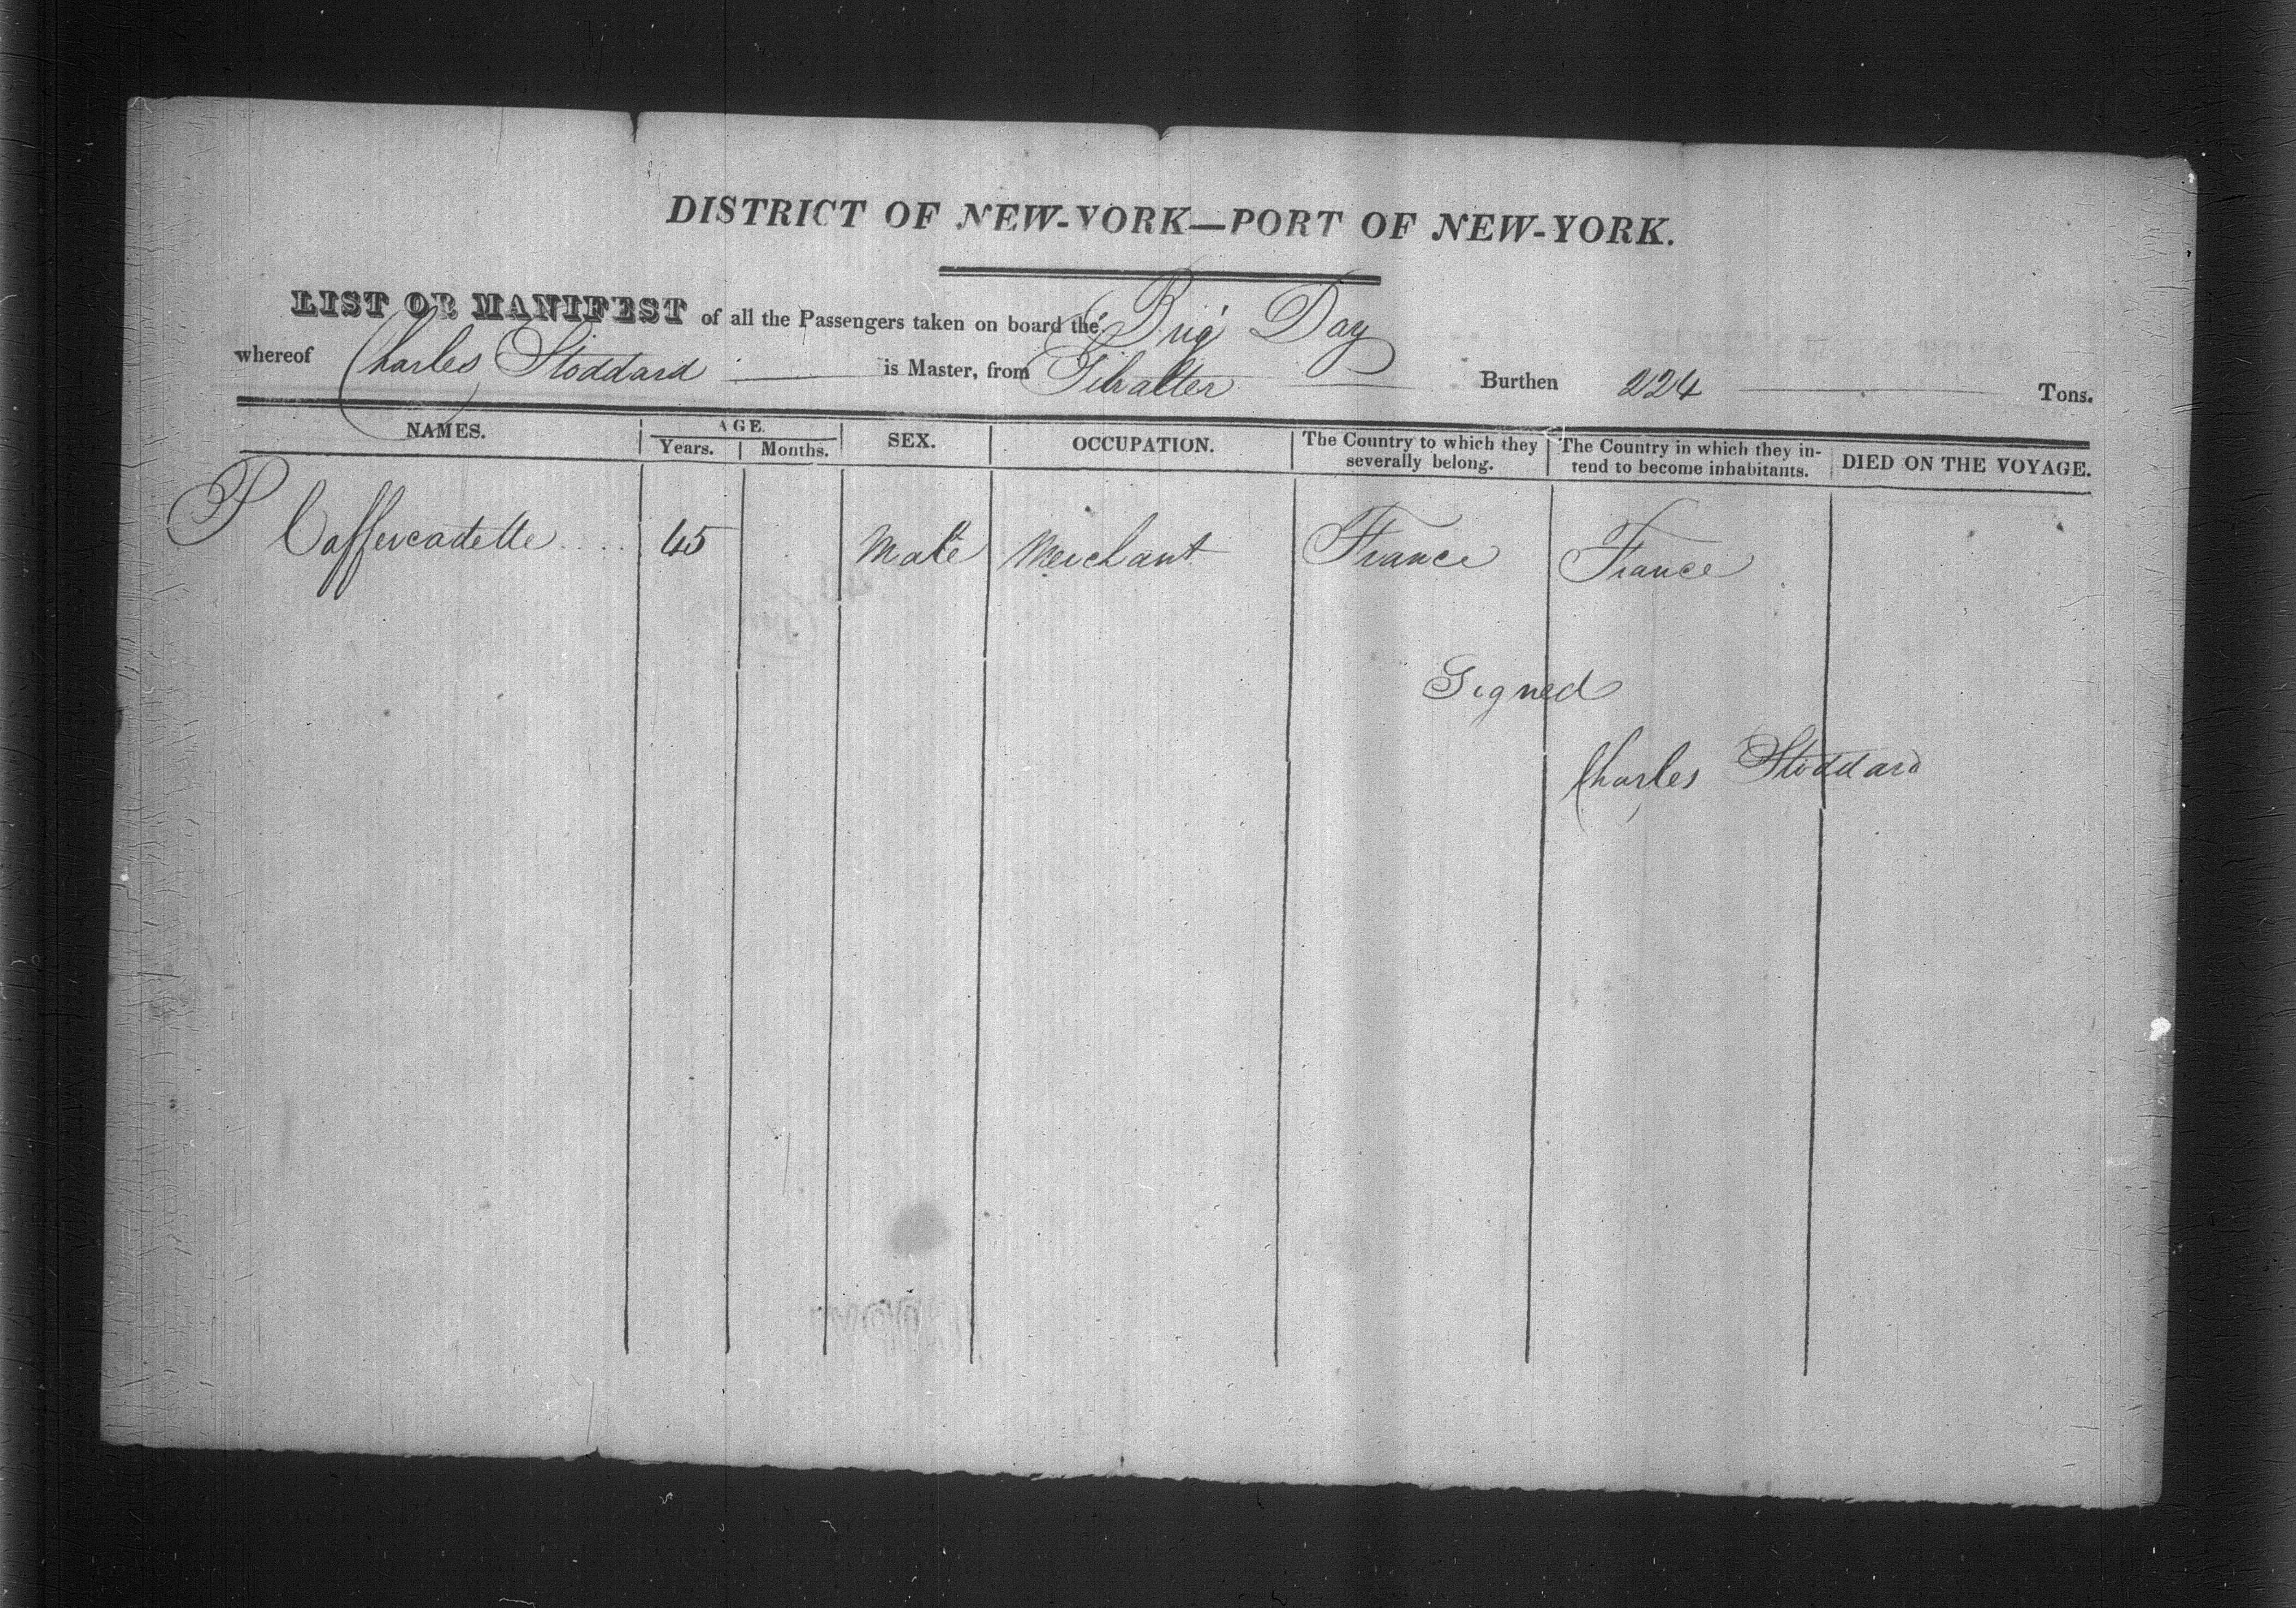 DISTRICT OF NEW-YORK—PORT OF NEW-YORK.
LIST OR MANIFEST of all the Passengers taken on board the Brig Day
whereof Charles Stoddard is Master, from Gibralter Burthen 224 Tons.
NAMES. AGE. Years. Months. SEX. OCCUPATION. The Country to which they severally belong. The Country in which they intend to become inhabitants. DIED ON THE VOYAGE.
P Caffercadette 45 Male Merchant France France
Signed
Charles Stoddard